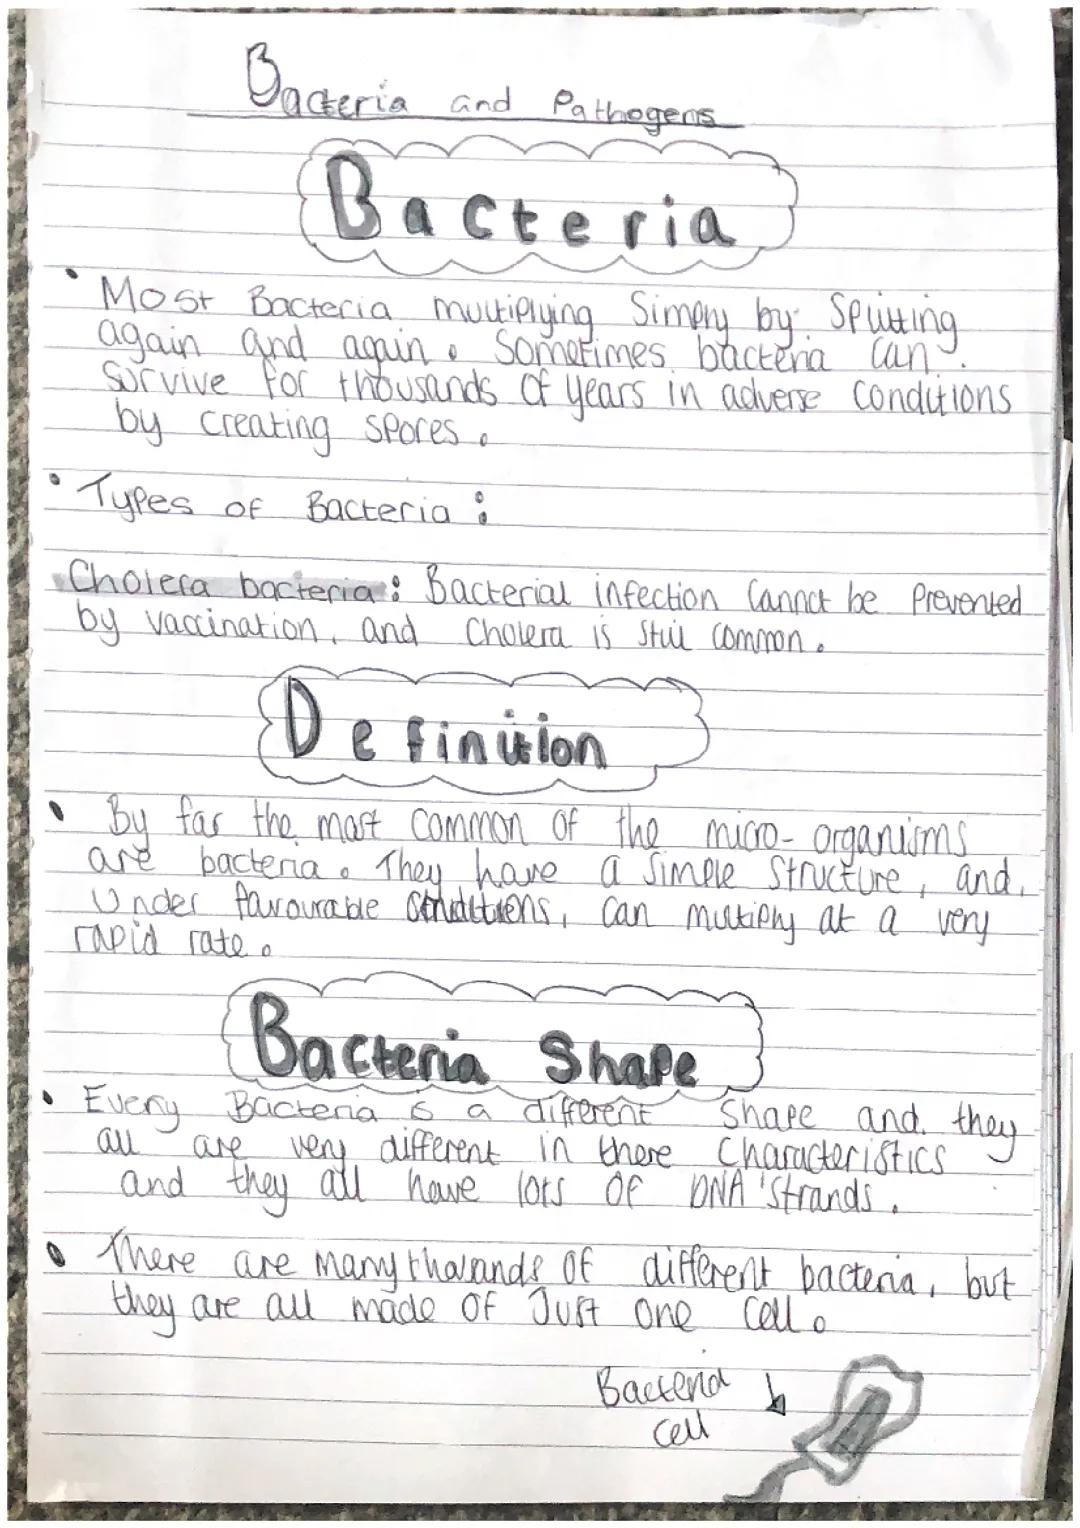 Bacteria and Pathogens
Bacteria
• Most Bacteria multiplying Simply by Splitting
again and again. Sometimes bacteria can
Survive for thousands of years in adverse conditions
by creating spores.
• Types of Bacteria :
Cholera bacteria: Bacterial infection Cannot be Prevented
by vaccination, and Cholera is still common.
Definition
• By far the most common of the micro-organisms
are bacteria. They have a simple structure, and,
Under favourable conditions, can multiply at a very
rapid rate.
Bacteria Shape
• Every Bacteria is a different Shape and they
all are very different in there Characteristics
and they all have lots of DNA strands.
• There are many thousands of different bacteria, but
they are all made of Just one Cell.
Bacteria
Cell